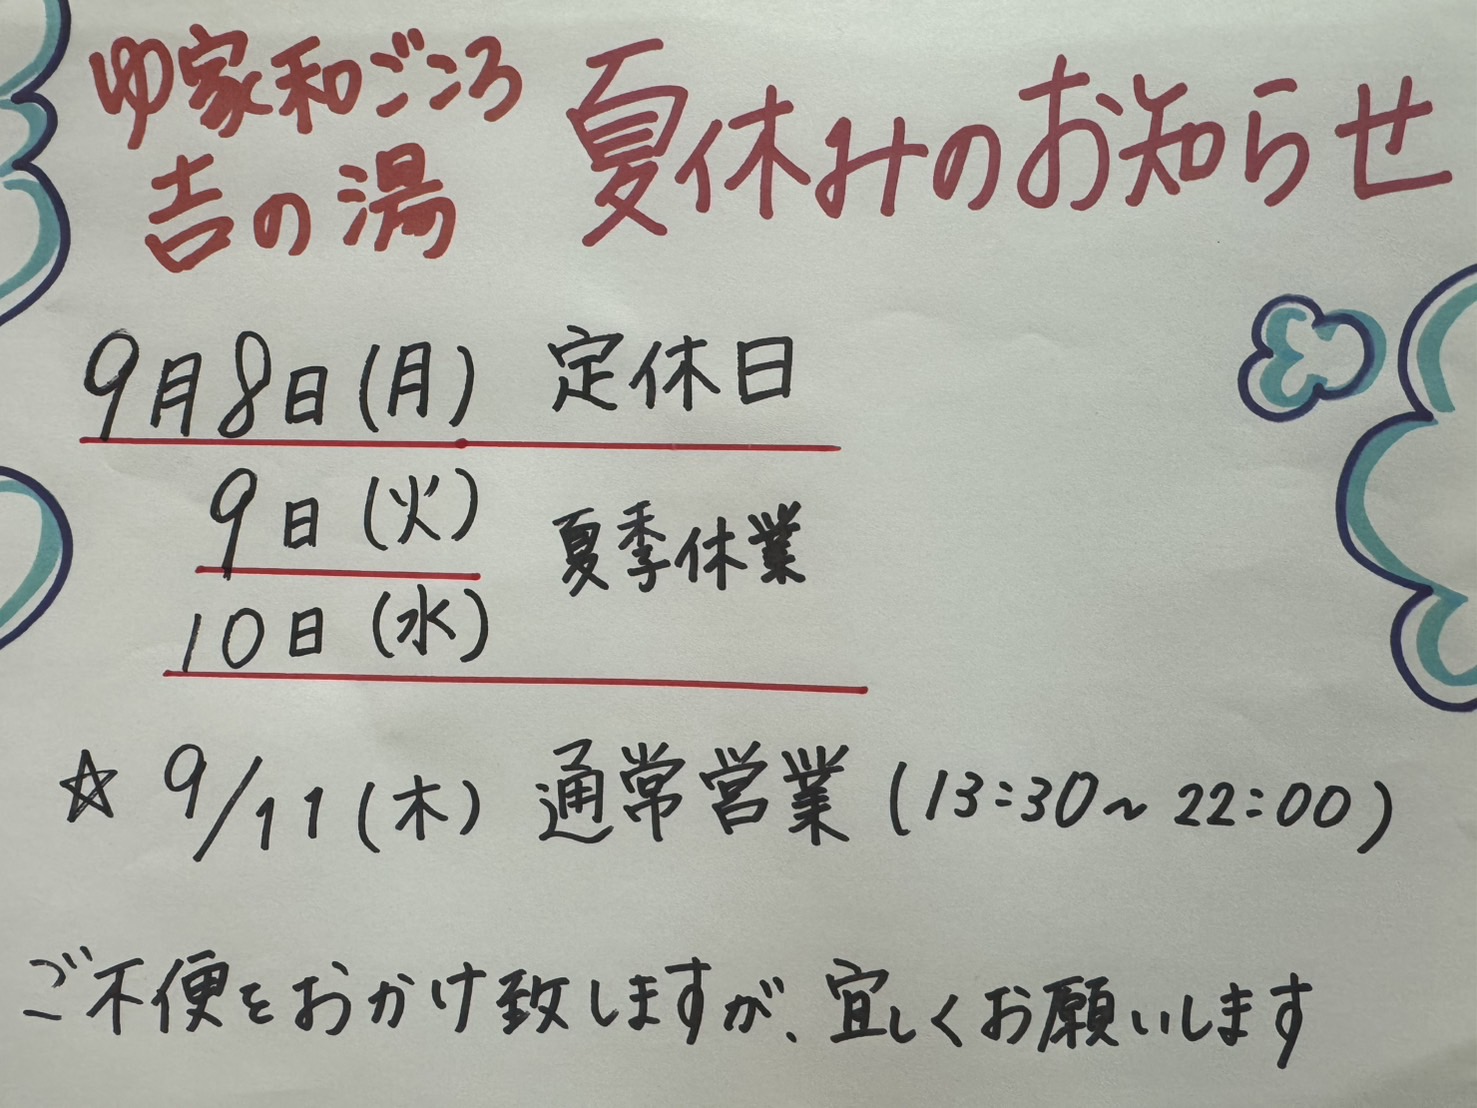 ゆ家和ごころ
吉の湯
夏休みのお知らせ
9月8日(月) 定休日
9日(火)
夏季休業
10日(水)
☆ 9/11(木) 通常営業 (13:30~22:00)
ご不便をおかけ致しますが、宜しくお願いします